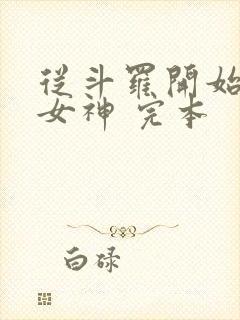 從斗羅開始
女神 完本
白碌